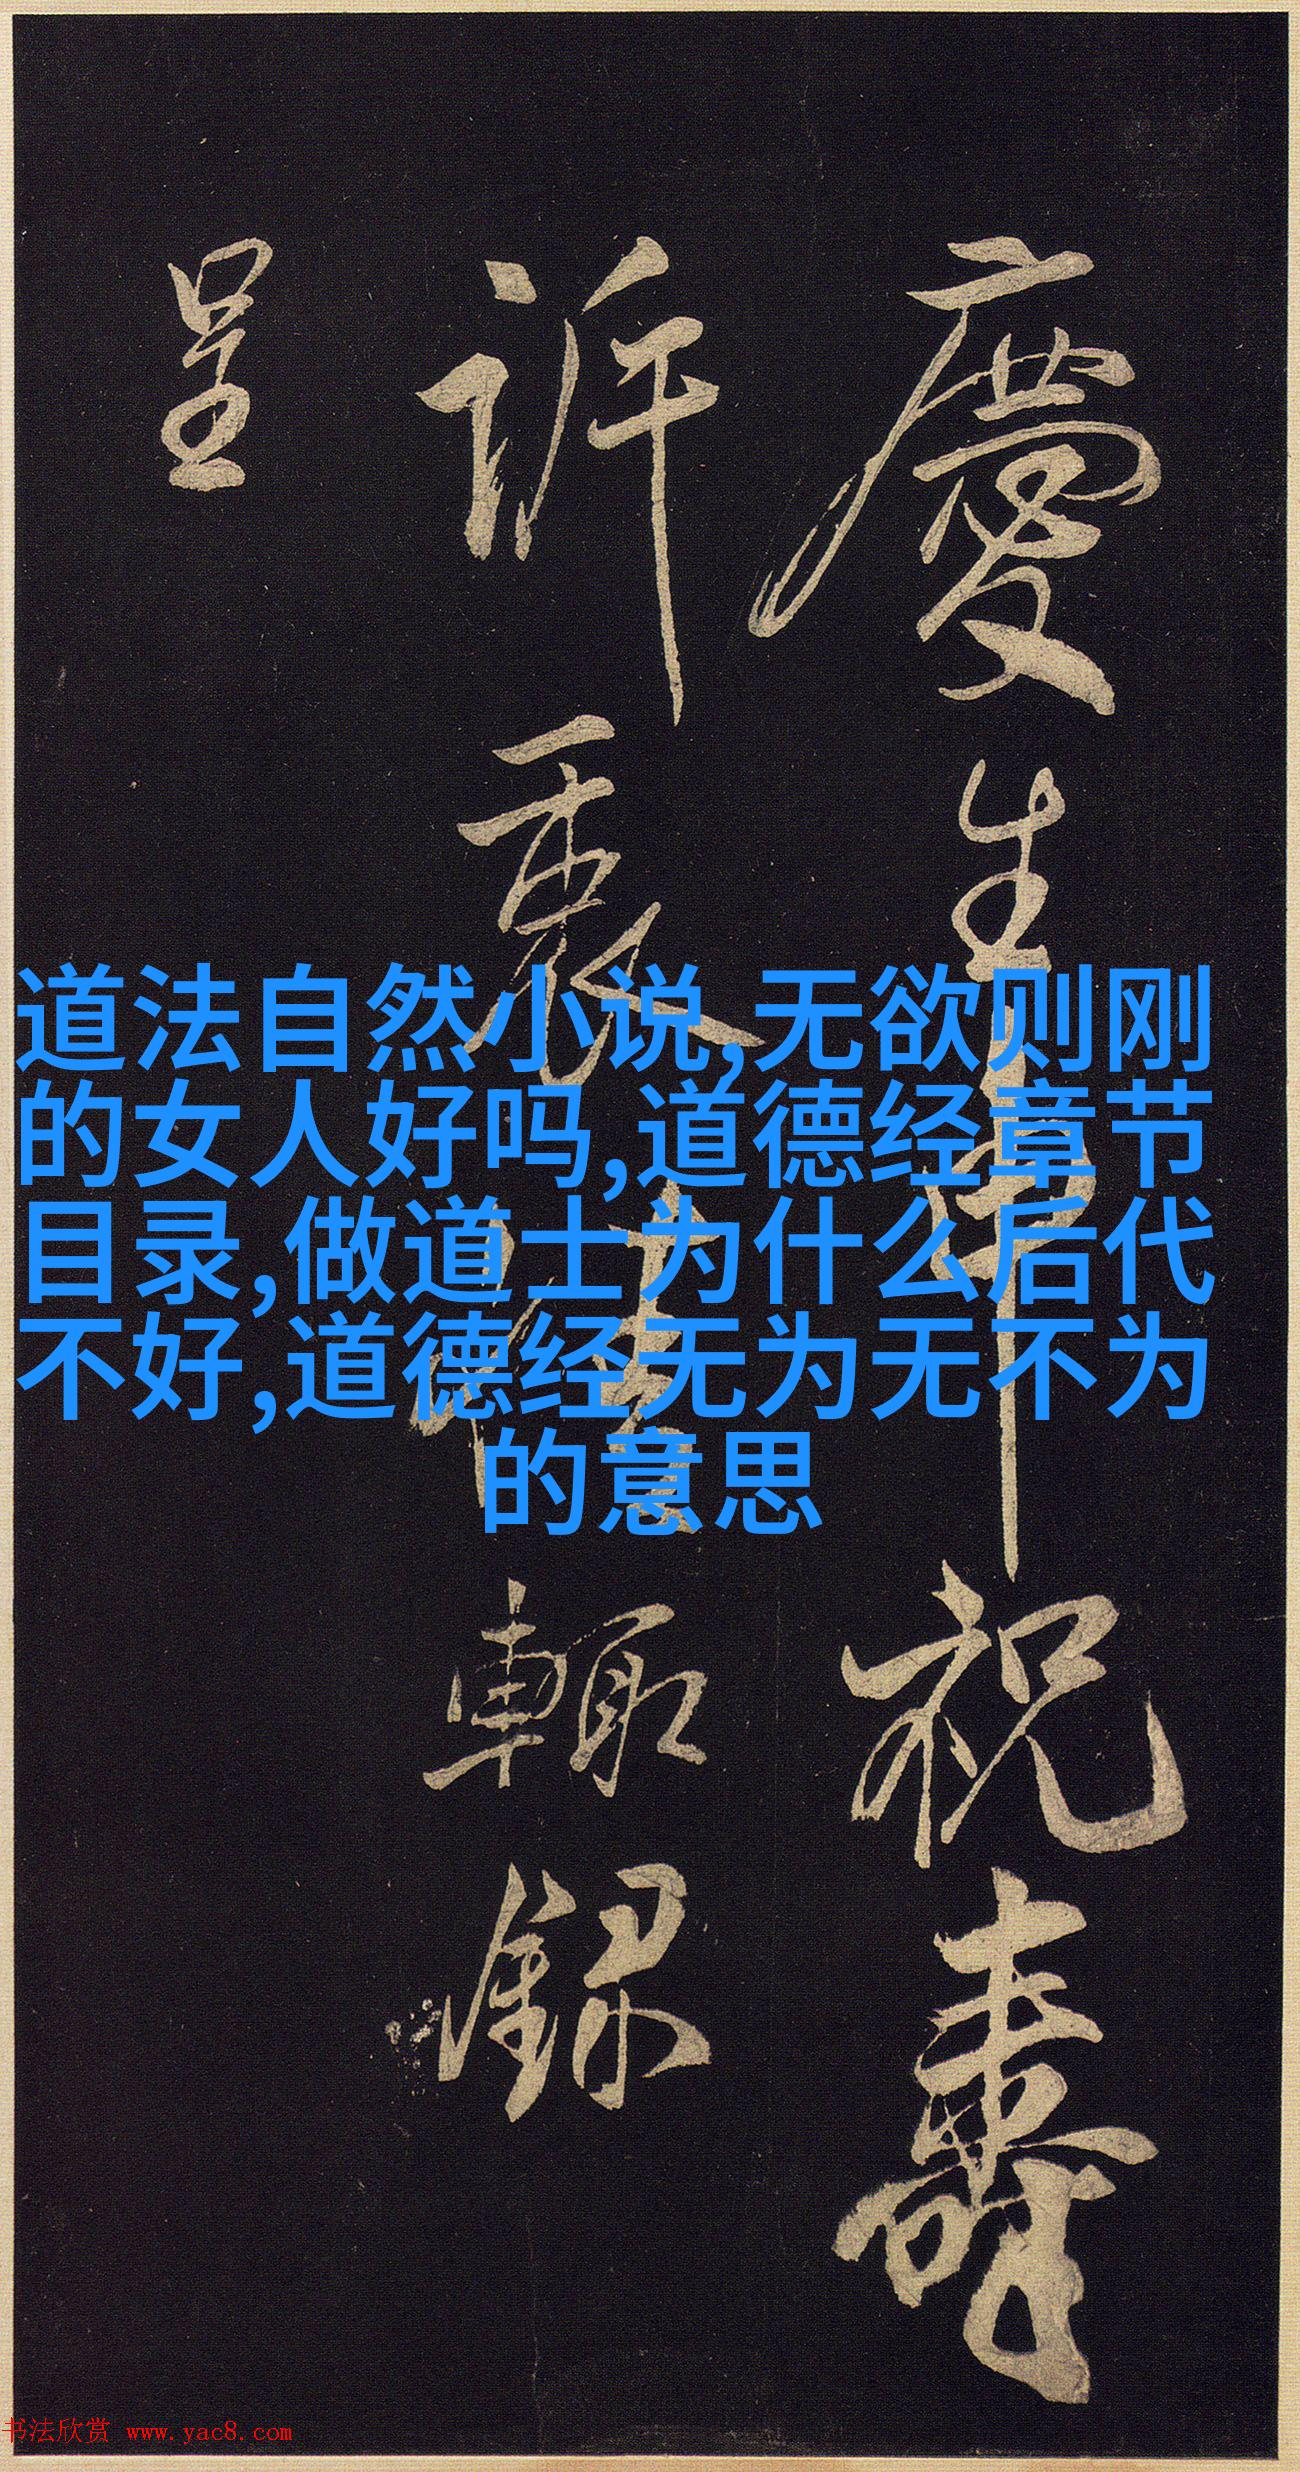 慶生申祝壽
訢衷情輙録
呈
道法自然小说,无欲则刚
的女人好吗,道德经章节
目录,做道士为什么后代
不好,道德经无为无不为
的意思
书法欣赏 www.yac8.com